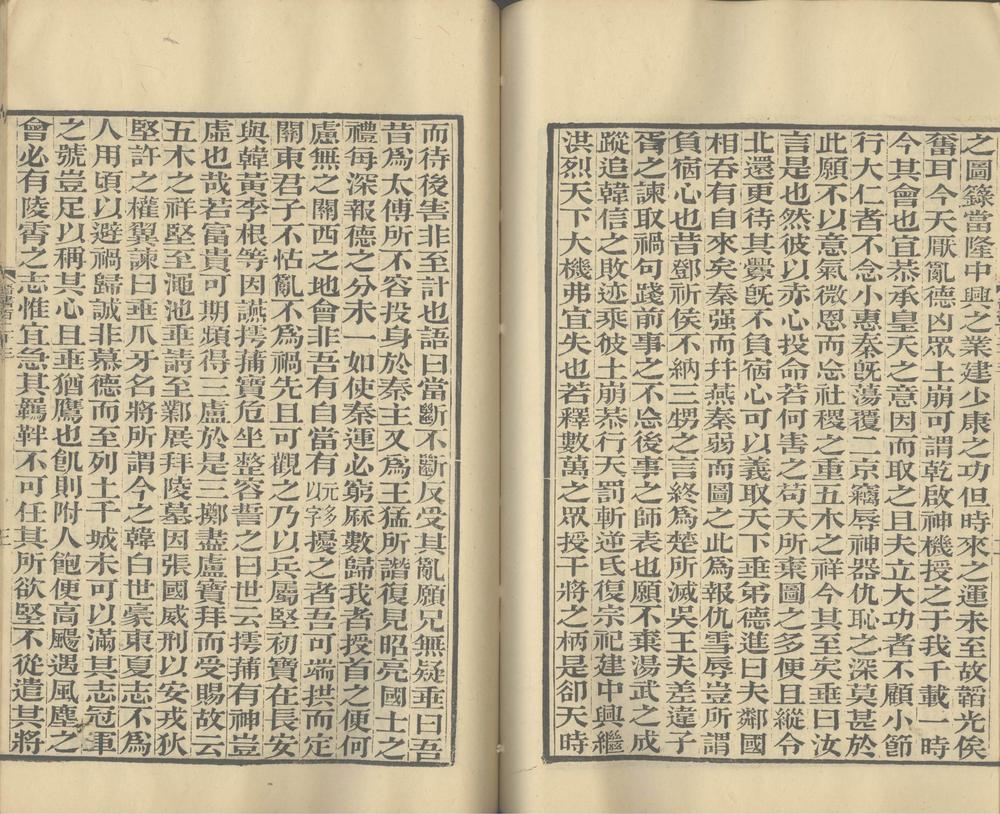 之圖籙當隆中興之業建少康之功但時來之運未至故韜光俟
奮耳今天厭亂德凶眾土崩可謂乾啟神機授之于我千載一時
今其會也宜恭承皇天之意因而取之且夫立大功者不顧小節
行大仁者不念小惠秦旣蕩覆二京竊辱神器仇恥之深莫甚於
此願不以意氣微恩而忘社稷之重五木之祥今其至矣垂曰汝
言是也然彼以赤心投命若何害之苟天所棄圖之多便且縱令
北還更待其釁旣不負宿心可以義取天下垂弟德進曰夫鄰國
相吞有自來矣秦强而幷燕秦弱而圖之此為報仇雪辱豈所謂
負宿心也昔鄧祈侯不納三甥之言終為楚所滅吳王夫差違子
胥之諫取禍句踐前事之不忘後事之師表也願不棄湯武之成
蹤追韓信之敗迹乘彼土崩恭行天罰斬逆氐復宗祀建中興繼
洪烈天下大機弗宜失也若釋數萬之眾授干將之柄是卻天時
而待後害非至計也語曰當斷不斷反受其亂願兄無疑垂曰吾
昔為太傅所不容投身於秦主又為王猛所譖復見昭亮國士之
禮每深報德之分未一如使秦運必窮厤數歸我者授首之便何
慮無之關西之地會非吾有自當有元多以字擾之者吾可端拱而定
關東君子不怙亂不為禍先且可觀之乃以兵屬堅初寶在長安
與韓黃李根等因讌摴蒱寶危坐整容誓之曰世云摴蒱有神豈
虛也哉若富貴可期頻得三盧於是三擲盡盧寶拜而受賜故云
五木之祥堅至澠池垂請至鄴展拜陵墓因張國威刑以安戎狄
堅許之權翼諫曰垂爪牙名將所謂今之韓白世豪東夏志不為
人用頃以避禍歸誠非慕德而至列土千城未可以滿其志冠軍
之號豈足以稱其心且垂猶鷹也飢則附人飽便高颺遇風塵之
會必有陵霄之志惟宜急其羈靽不可任其所欲堅不從遣其將